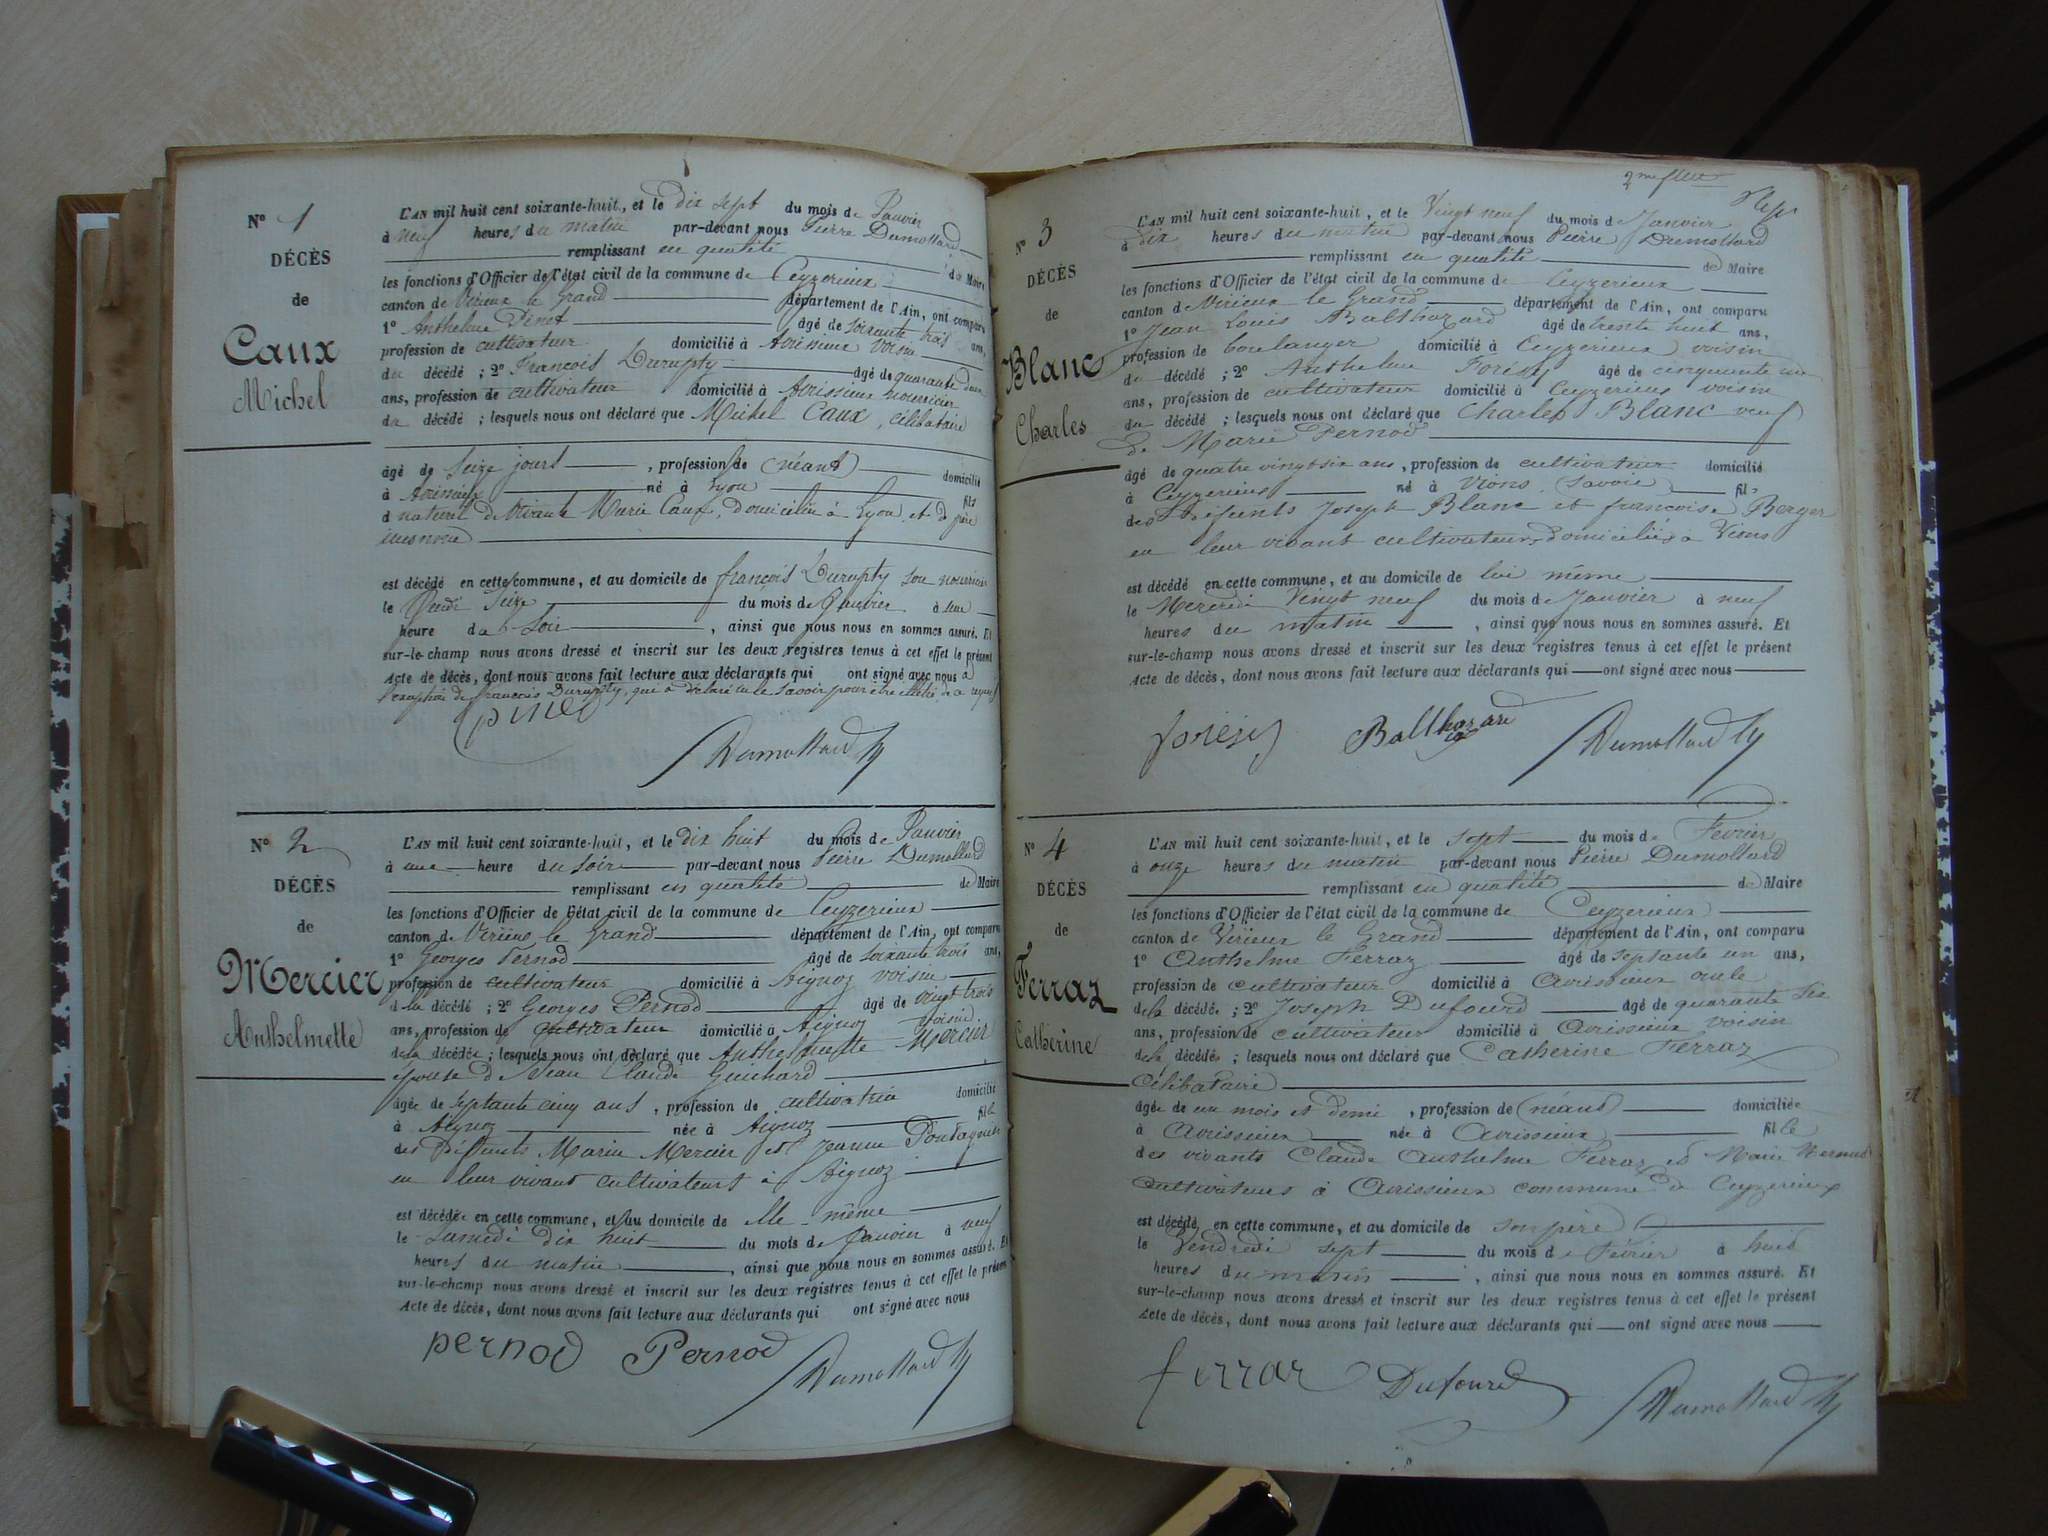 Nº 1
DÉCÈS
de
Caux
Michel
L'AN mil huit cent soixante-huit, et le dix sept du mois de Janvier
à neuf heures du matin par-devant nous Pierre Dumollard
remplissant en qualité de Maire
les fonctions d'Officier de l'état civil de la commune de Ceyzerieux
canton de Virieux le Grand département de l'Ain, ont comparu
1º Anthelme Pinet âgé de soixante trois ans,
profession de cultivateur domicilié à Avrissieux voisin
du décédé ; 2º François Durupty âgé de quarante deux
ans, profession de cultivateur domicilié à Avrissieux nourricier
du décédé ; lesquels nous ont déclaré que Michel Caux, célibataire
âgé de seize jours, profession de (néant) domicilié
à Avrissieux né à Lyon fils
naturel de vivante Marie Caux, domiciliée à Lyon et de père
inconnu
est décédé en cette commune, et au domicile de françois Durupty son nourricier
le Jeudi seize du mois de Janvier à une
heure du soir, ainsi que nous nous en sommes assuré. Et
sur-le-champ nous avons dressé et inscrit sur les deux registres tenus à cet effet le présent
Acte de décès, dont nous avons fait lecture aux déclarants qui ont signé avec nous à
l'exception de françois Durupty, qui a déclaré ne le savoir pour être illétré de ce requis
pinet
Dumollard
Nº 2
DÉCÈS
de
Mercier
Anthelmette
L'AN mil huit cent soixante-huit, et le dix huit du mois de Janvier
à une heure du soir par-devant nous Pierre Dumollard
remplissant en qualité de Maire
les fonctions d'Officier de l'état civil de la commune de Ceyzerieux
canton de Virieux le Grand département de l'Ain, ont comparu
1º Georges Pernod âgé de soixante trois ans,
profession de cultivateur domicilié à Aignoz voisin
de la décédé ; 2º Georges Pernod âgé de vingt trois
ans, profession de cultivateur domicilié à Aignoz voisin
de la décédée ; lesquels nous ont déclaré que Anthelmette Mercier
épouse de Jean Claude Guichard
âgée de septante cinq ans, profession de cultivatrice domicilié
à Aignoz née à Aignoz fille
des défunts Marin Mercier et Jeanne
en leur vivant cultivateurs à Aignoz
est décédée en cette commune, et au domicile de elle-même
le samedi dix huit du mois de Janvier à neuf
heures du matin, ainsi que nous nous en sommes assuré. Et
sur-le-champ nous avons dressé et inscrit sur les deux registres tenus à cet effet le présent
Acte de décès, dont nous avons fait lecture aux déclarants qui ont signé avec nous
pernod Pernod Dumollard
2me
Nº 3
DÉCÈS
de
Blanc
Charles
L'AN mil huit cent soixante-huit, et le Vingt neuf du mois de Janvier
à dix heures du matin par-devant nous Pierre Dumollard
remplissant en qualité de Maire
les fonctions d'Officier de l'état civil de la commune de Ceyzerieux
canton de Virieux le Grand département de l'Ain, ont comparu
1º Jean Louis Balthazard âgé de trente huit ans,
profession de boulanger domicilié à Ceyzerieux voisin
du décédé ; 2º Anthelme Forisy âgé de cinquante un
ans, profession de cultivateur domicilié à Ceyzerieux voisin
du décédé ; lesquels nous ont déclaré que Charles Blanc veuf
de Marie Pernod
âgé de quatre vingt six ans, profession de cultivateur domicilié
à Ceyzerieux né à Vions (Savoie) fils
des défunts Joseph Blanc et francoise Berger
en leur vivant cultivateurs domiciliés à Vions
est décédé en cette commune, et au domicile de lui même
le Mercredi vingt neuf du mois de Janvier à neuf
heures du matin, ainsi que nous nous en sommes assuré. Et
sur-le-champ nous avons dressé et inscrit sur les deux registres tenus à cet effet le présent
Acte de décès, dont nous avons fait lecture aux déclarants qui ont signé avec nous
Balthazard Dumollard
Nº 4
DÉCÈS
de
Ferraz
Catherine
L'AN mil huit cent soixante-huit, et le sept du mois de Février
à onze heures du matin par-devant nous Pierre Dumollard
remplissant en qualité de Maire
les fonctions d'Officier de l'état civil de la commune de Ceyzerieux
canton de Virieux le Grand département de l'Ain, ont comparu
1º Anthelme Ferraz âgé de septante un ans,
profession de cultivateur domicilié à Avrissieux
de la décédée ; 2º Joseph Dufourd âgé de quarante six
ans, profession de cultivateur domicilié à Avrissieux voisin
de la décédée ; lesquels nous ont déclaré que Catherine Ferraz
célibataire
âgée de un mois et demi, profession de (néant) domiciliée
à Avrissieux née à Avrissieux fille
des vivants Claude Anthelme Ferraz et Marie
cultivateurs à Avrissieux commune de Ceyzerieux
est décédé en cette commune, et au domicile de son père
le Vendredi sept du mois de Février à huit
heures du matin, ainsi que nous nous en sommes assuré. Et
sur-le-champ nous avons dressé et inscrit sur les deux registres tenus à cet effet le présent
Acte de décès, dont nous avons fait lecture aux déclarants qui ont signé avec nous
ferraz Dufourd Dumollard